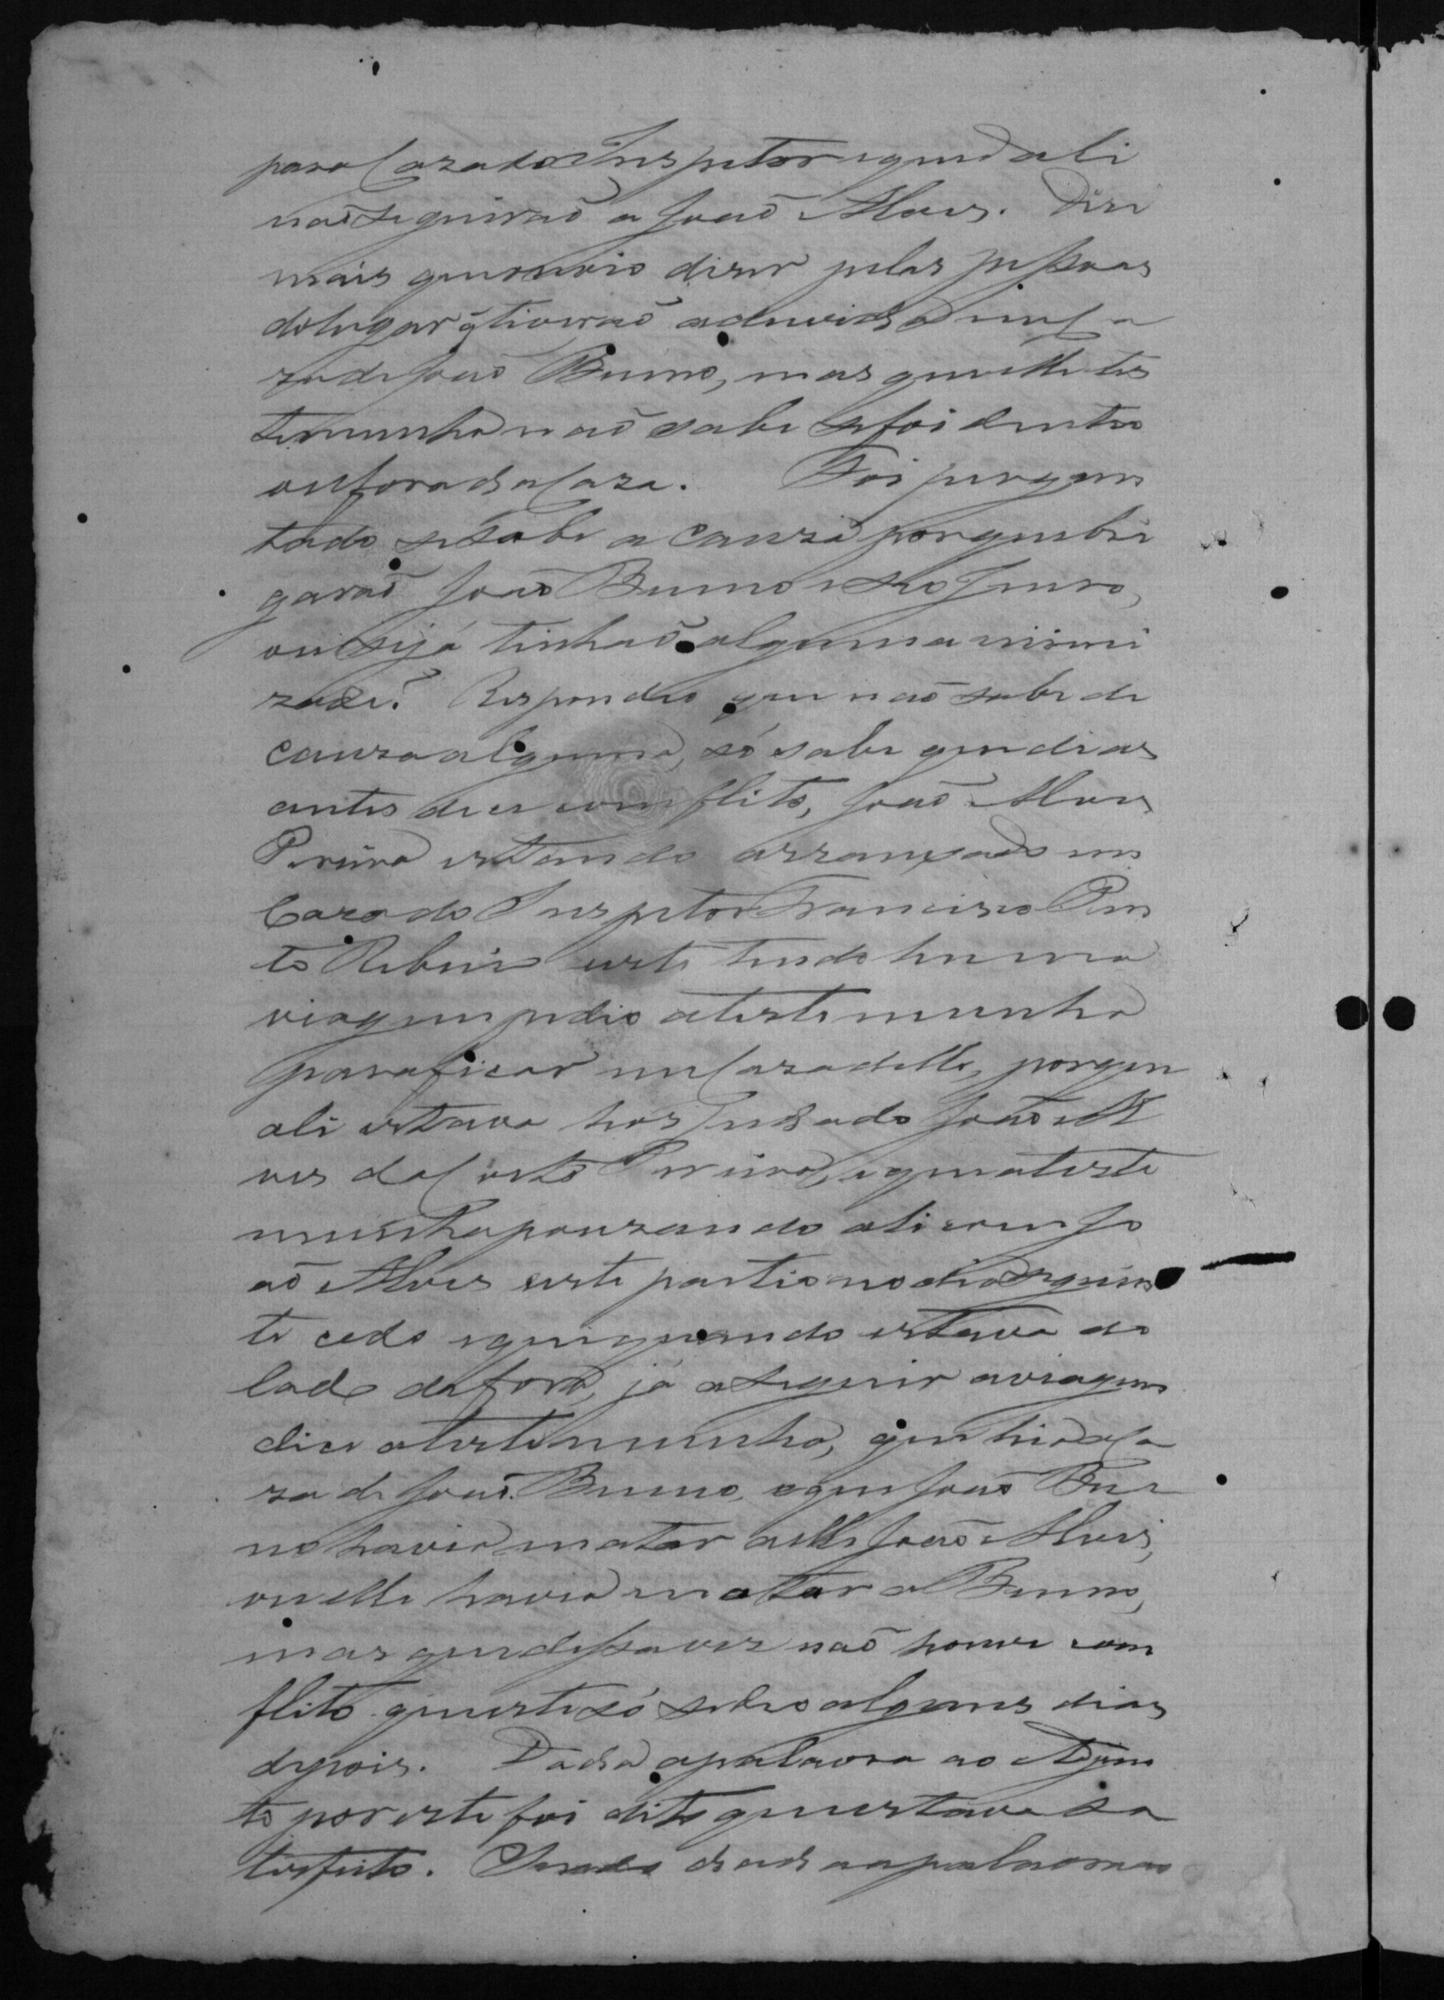 para Caza do Inspetor e que d'ali
não seguirão a João Alves. Dice
mais que ouvio dizer pelas pessoas
do lugar q̃ tiverão a duvida em Ca
za de João Bueno, mas que elle tes
temunha não sabe se foi dentro
ou fora da Caza. Foi pergun
tado se sabe a cauza porque bri
garão João Bueno e seo Genro,
ou se já tinhão alguma inimi
zade? Respondeo que não sabe de
cauza alguma, só sabe que dias
antes de ce comflito, João Alves
Pereira estando arranxado em
Caza do Inspetor Francisco Pin
to Ribeiro este tendo huma
viagem pedio a testemunha
para ficar em Caza delle, porque
ali estava hospedado João Al
ves da Costa Pereira, e que a teste
munha pouzando ali com Jo
ão Alves este partio no dia seguin
te cedo e que quando estava do
lado de fora, já a seguir a viagem
dice a testemunha, que hia a Ca
za de João Bueno, e que João Bue
no havia matar a elle João Alves,
ou elle havia matar a Bueno,
mas que dessa vez não houve com
flito que este só se deo alguns dias
depois. Dada a palavra ao Ajun
to por este foi dito que estava sa
tisfeito. Sendo dada a palavra ao